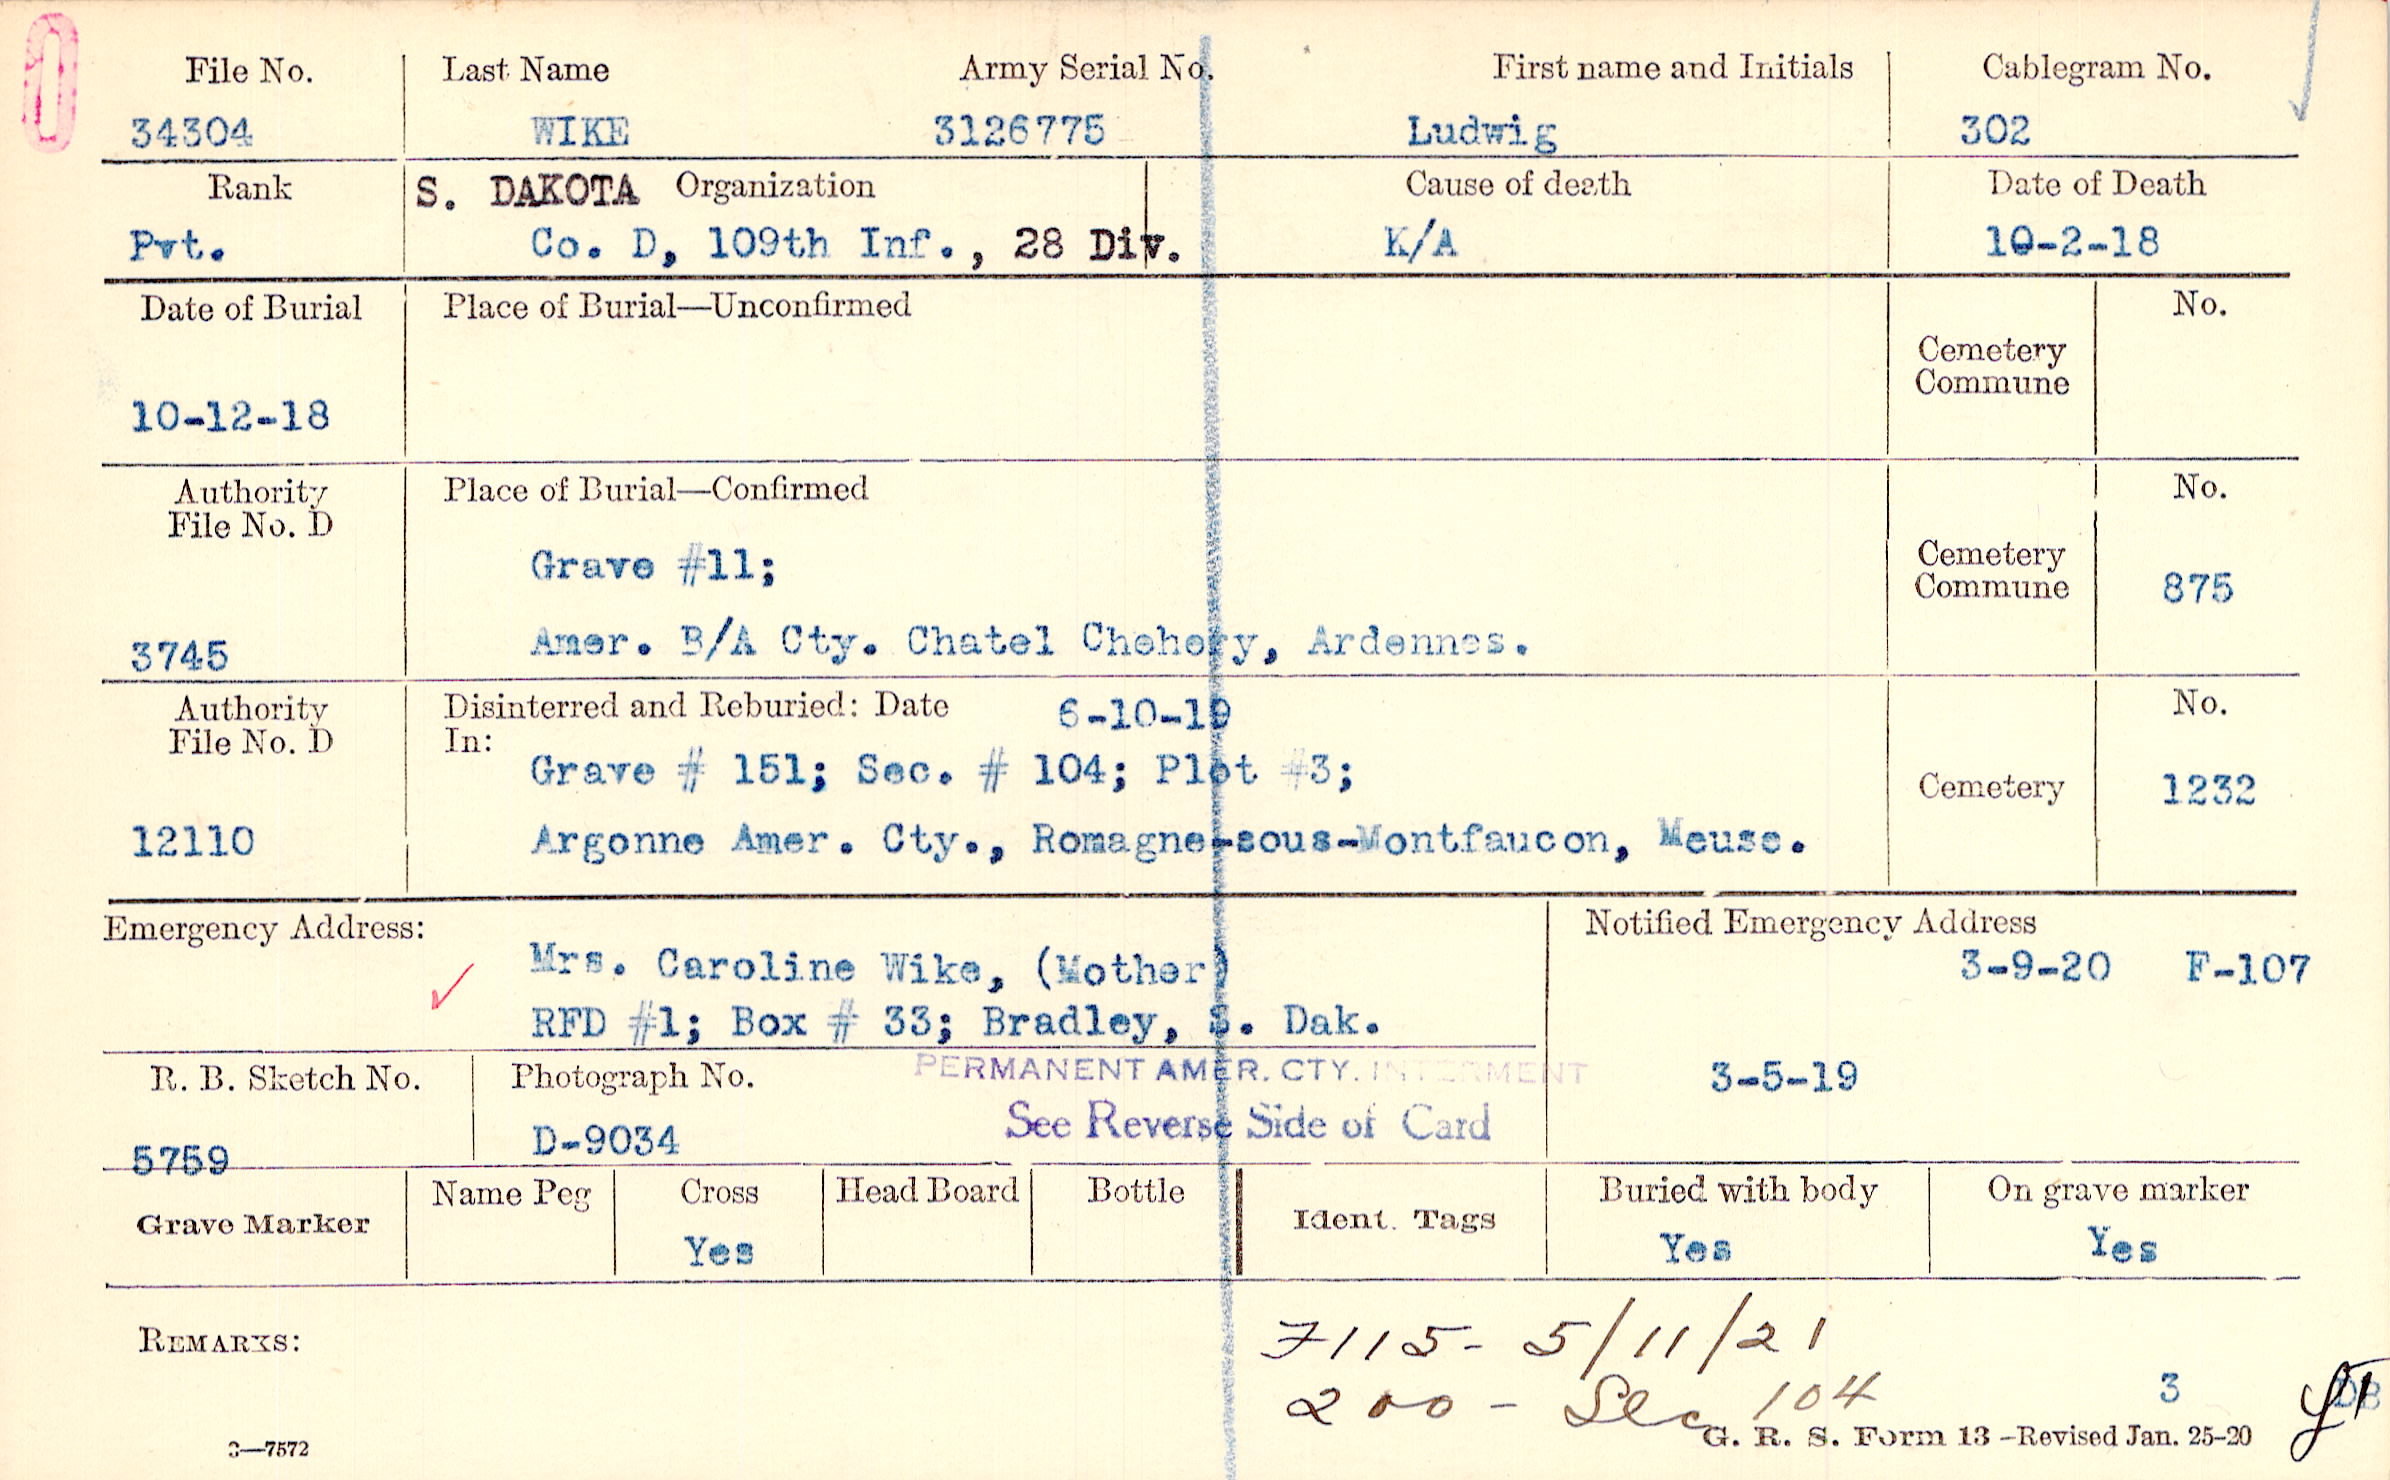 File No. Last Name Army Serial No. First name and Initials Cablegram No.
34304 WIKE 3126775 Ludwig 302
Rank S. DAKOTA Organization Cause of death Date of Death
Pvt. Co. D, 109th Inf., 28 Div. K/A 10-2-18
Date of Burial Place of Burial—Unconfirmed No.
Cemetery
Commune
10-12-18
Authority Place of Burial—Confirmed No.
File No. D
Grave #11; Cemetery
Commune 875
3745 Amer. B/A Cty. Chatel Chehery, Ardennes.
Authority Disinterred and Reburied: Date 6-10-19 No.
File No. D In:
Grave # 151; Sec. # 104; Plot #3; Cemetery 1232
12110 Argonne Amer. Cty., Romagne-sous-Montfaucon, Meuse.
Emergency Address: Notified Emergency Address
Mrs. Caroline Wike, (Mother) 3-9-20 F-107
RFD #1; Box # 33; Bradley, S. Dak.
R. B. Sketch No. Photograph No. PERMANENT AMER. CTY. INTERMENT 3-5-19
5759 D-9034 See Reverse Side of Card
Grave Marker Name Peg Cross Head Board Bottle Ident. Tags Buried with body On grave marker
Yes Yes Yes
REMARKS: 7115- 5/11/21
200 - Sec 104 3
3—7572 G. R. S. Form 13 -Revised Jan. 25-20